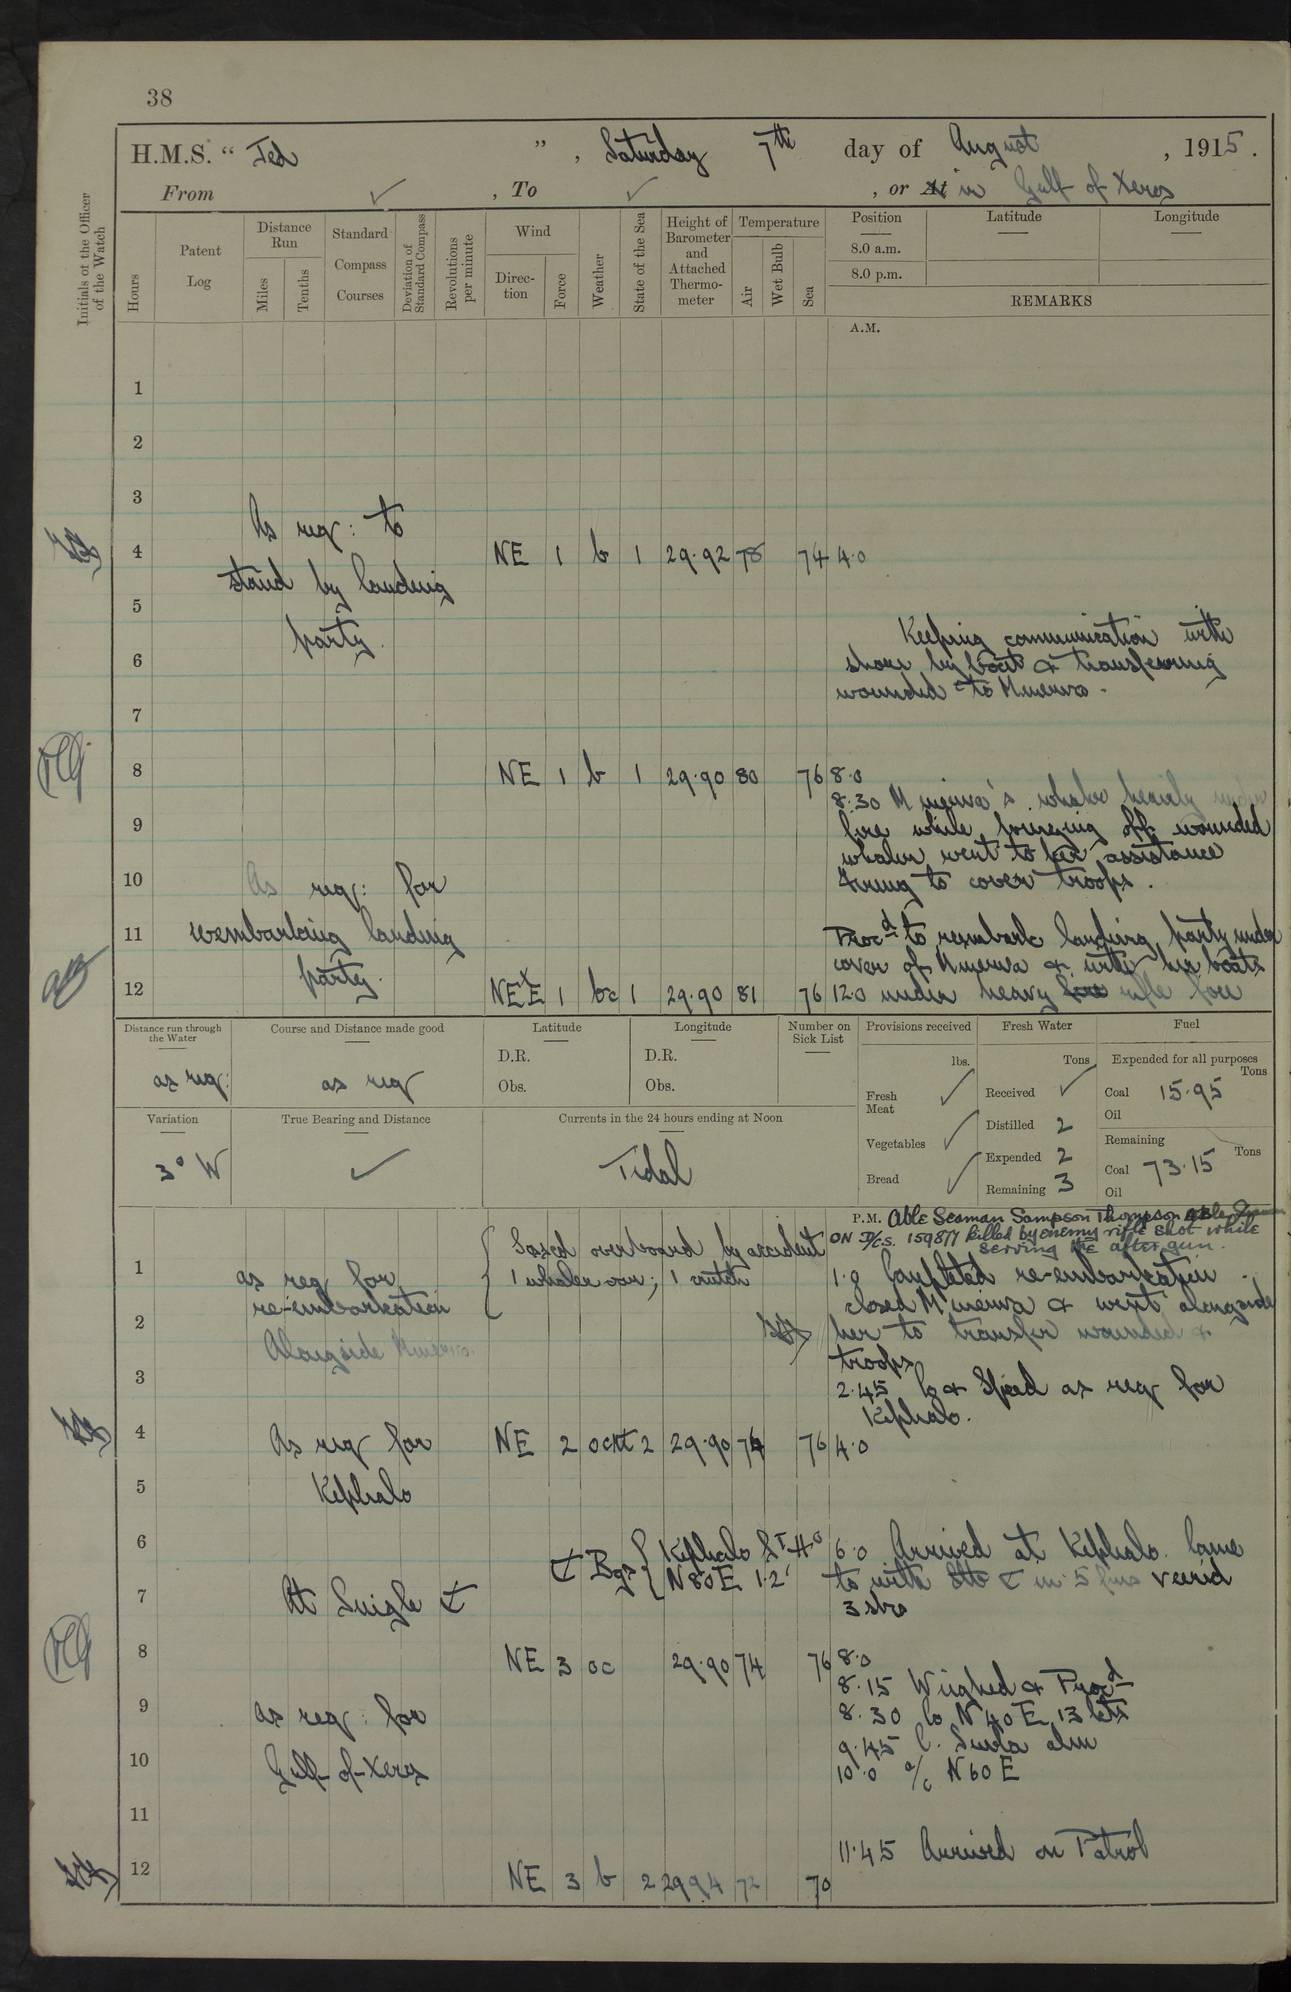 38
H.M.S. " Jed ", Saturday 7th day of August, 1915.
From ✓, To ✓, or At in Gulf of Xeros
Initials of the Officer of the Watch
Hours
Patent Log
Distance Run
Miles
Tenths
Standard Compass Courses
Deviation of Standard Compass
Revolutions per minute
Wind
Direction
Force
Weather
State of the Sea
Height of Barometer and Attached Thermometer
Temperature
Air
Wet Bulb
Sea
Position
Latitude
Longitude
8.0 a.m.
8.0 p.m.
REMARKS
A.M.
1
2
3
As req: to
4 NE 1 b 1 29.92 78 74 4.0
stand by landing
5
party.
Keeping communication with
6 shore by boat & transferring
wounded to Minerva.
7
8 NE 1 b 1 29.90 80 76 8.0
8.30 Minerva's whaler heavily under
9 fire while bringing off wounded
whaler went to her assistance
10 As req: for
Firing to cover troops.
11 reembarking landing Procd to reembark landing party under
party. cover of Minerva & with her boats
12 NExE 1 bc 1 29.90 81 76 12.0 under heavy fire rifle fire
Distance run through the Water
as req:
Course and Distance made good
as req
Latitude
D.R.
Obs.
Longitude
D.R.
Obs.
Number on Sick List
Provisions received
lbs.
Fresh Meat ✓
Vegetables ✓
Bread ✓
Fresh Water
Tons
Received ✓
Distilled 2
Expended 2
Remaining 3
Fuel
Expended for all purposes
Tons
Coal 15.95
Oil
Remaining
Tons
Coal 73.15
Oil
Variation
3° W
True Bearing and Distance
✓
Currents in the 24 hours ending at Noon
Tidal
P.M. Able Seaman Sampson Thompson
ON D/CS. 159877 killed by enemy rifle shot while
serving the after gun.
Lossed overboard by accident
1 whaler oar; 1 crutch
1 as req for 1.0 Completed re-embarkation
re-embarkation closed Minerva & went alongside
2 her to transfer wounded &
Alongside Minerva troops
3 2.45 Co & Speed as req for
Kephalo.
4 As req for NE 2 2 29.90 74 76 4.0
Kephalo
5
6 Bgs { Kephalo Lt Ho 6.0 Arrived at Kephalo. Came
N80E 1.2' to with in 5 fms veerd
7 At Single 3 shrs
8 NE 3 oc 29.90 74 76 8.0
8.15 Weighed & Procd
9 as req: for 8.30 Co N40E 13 kts
9.45 Suvla abm
10 Gulf-of-Xeros 10.0 a/c N60E
11
11.45 Arrived on Patrol
12 NE 3 b 2 29.94 72 70